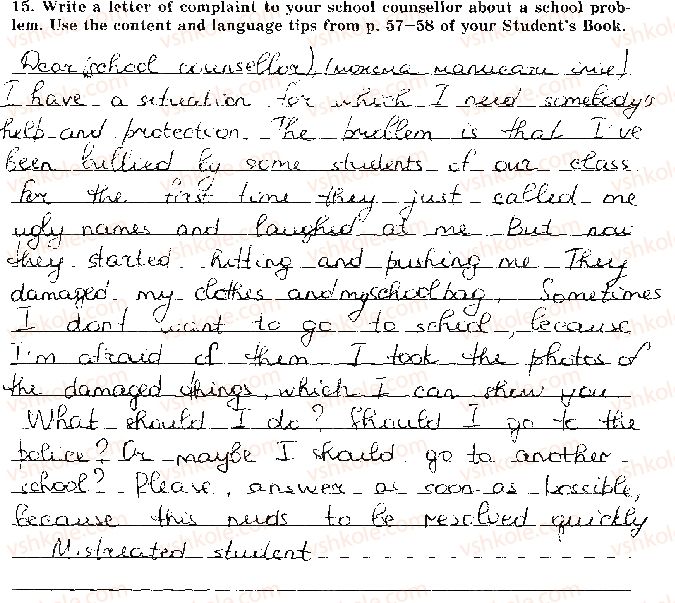 15. Write a letter of complaint to your school counsellor about a school prob-
lem. Use the content and language tips from p. 57–58 of your Student's Book.
Dear (school counsellor) (можна написати ім'я)
I have a situation for which I need somebody's
help and protection. The problem is that I've
been bullied by some students of our class.
For the first time they just called me
ugly names and laughed at me. But now
they started hitting and pushing me. They
damaged my clothes and my school bag. Sometimes
I don't want to go to school, because
I'm afraid of them. I took the photos of
the damaged things, which I can show you.
What should I do? Should I go to the
police? Or maybe I should go to another
school? Please, answer as soon as possible,
because this needs to be resolved quickly
Mistreated student